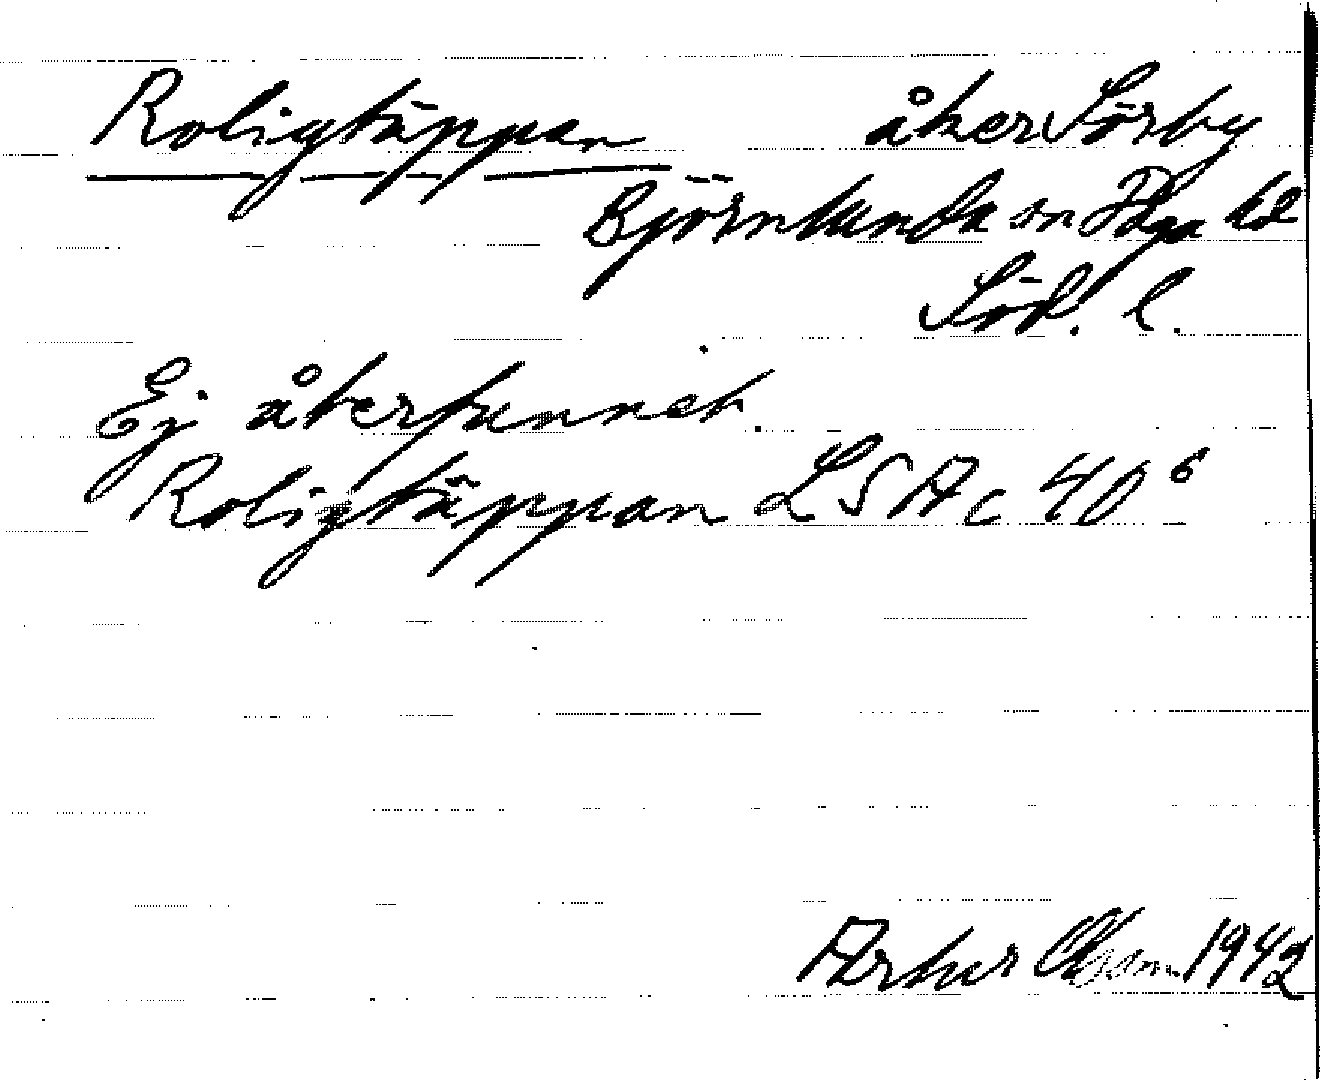 Roligtäppan åker Sörby
Björnlunda sn Daga hd
Söd. l.
Ej återfunnet.
Roligtäppan LSA c 40⁶
Arthur Olsson 1942